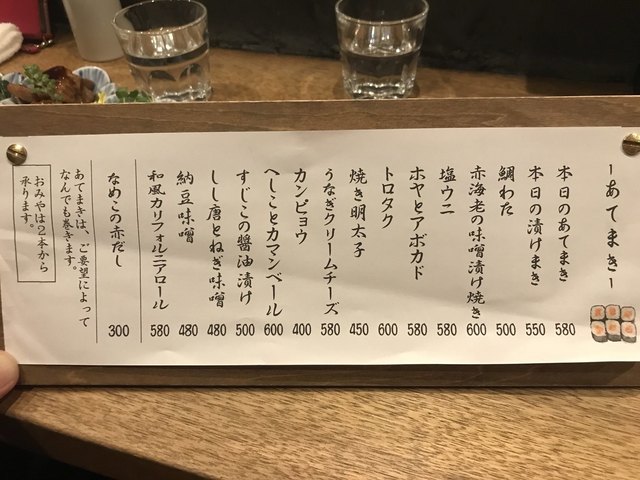 ーあてまきー
本日のあてまき 580
本日の漬けまき 550
鯛わた 500
赤海老の味噌漬け焼き 600
塩ウニ 580
ホヤとアボカド 580
トロタク 600
焼き明太子 450
うなぎクリームチーズ 580
カンピョウ 400
へしことカマンベール 600
すじこの醤油漬け 500
しし唐とねぎ味噌 480
納豆味噌 480
和風カリフォルニアロール 580
なめこの赤だし 300
あてまきは、ご要望によって
なんでも巻きます。
おみやは2本から
承ります。